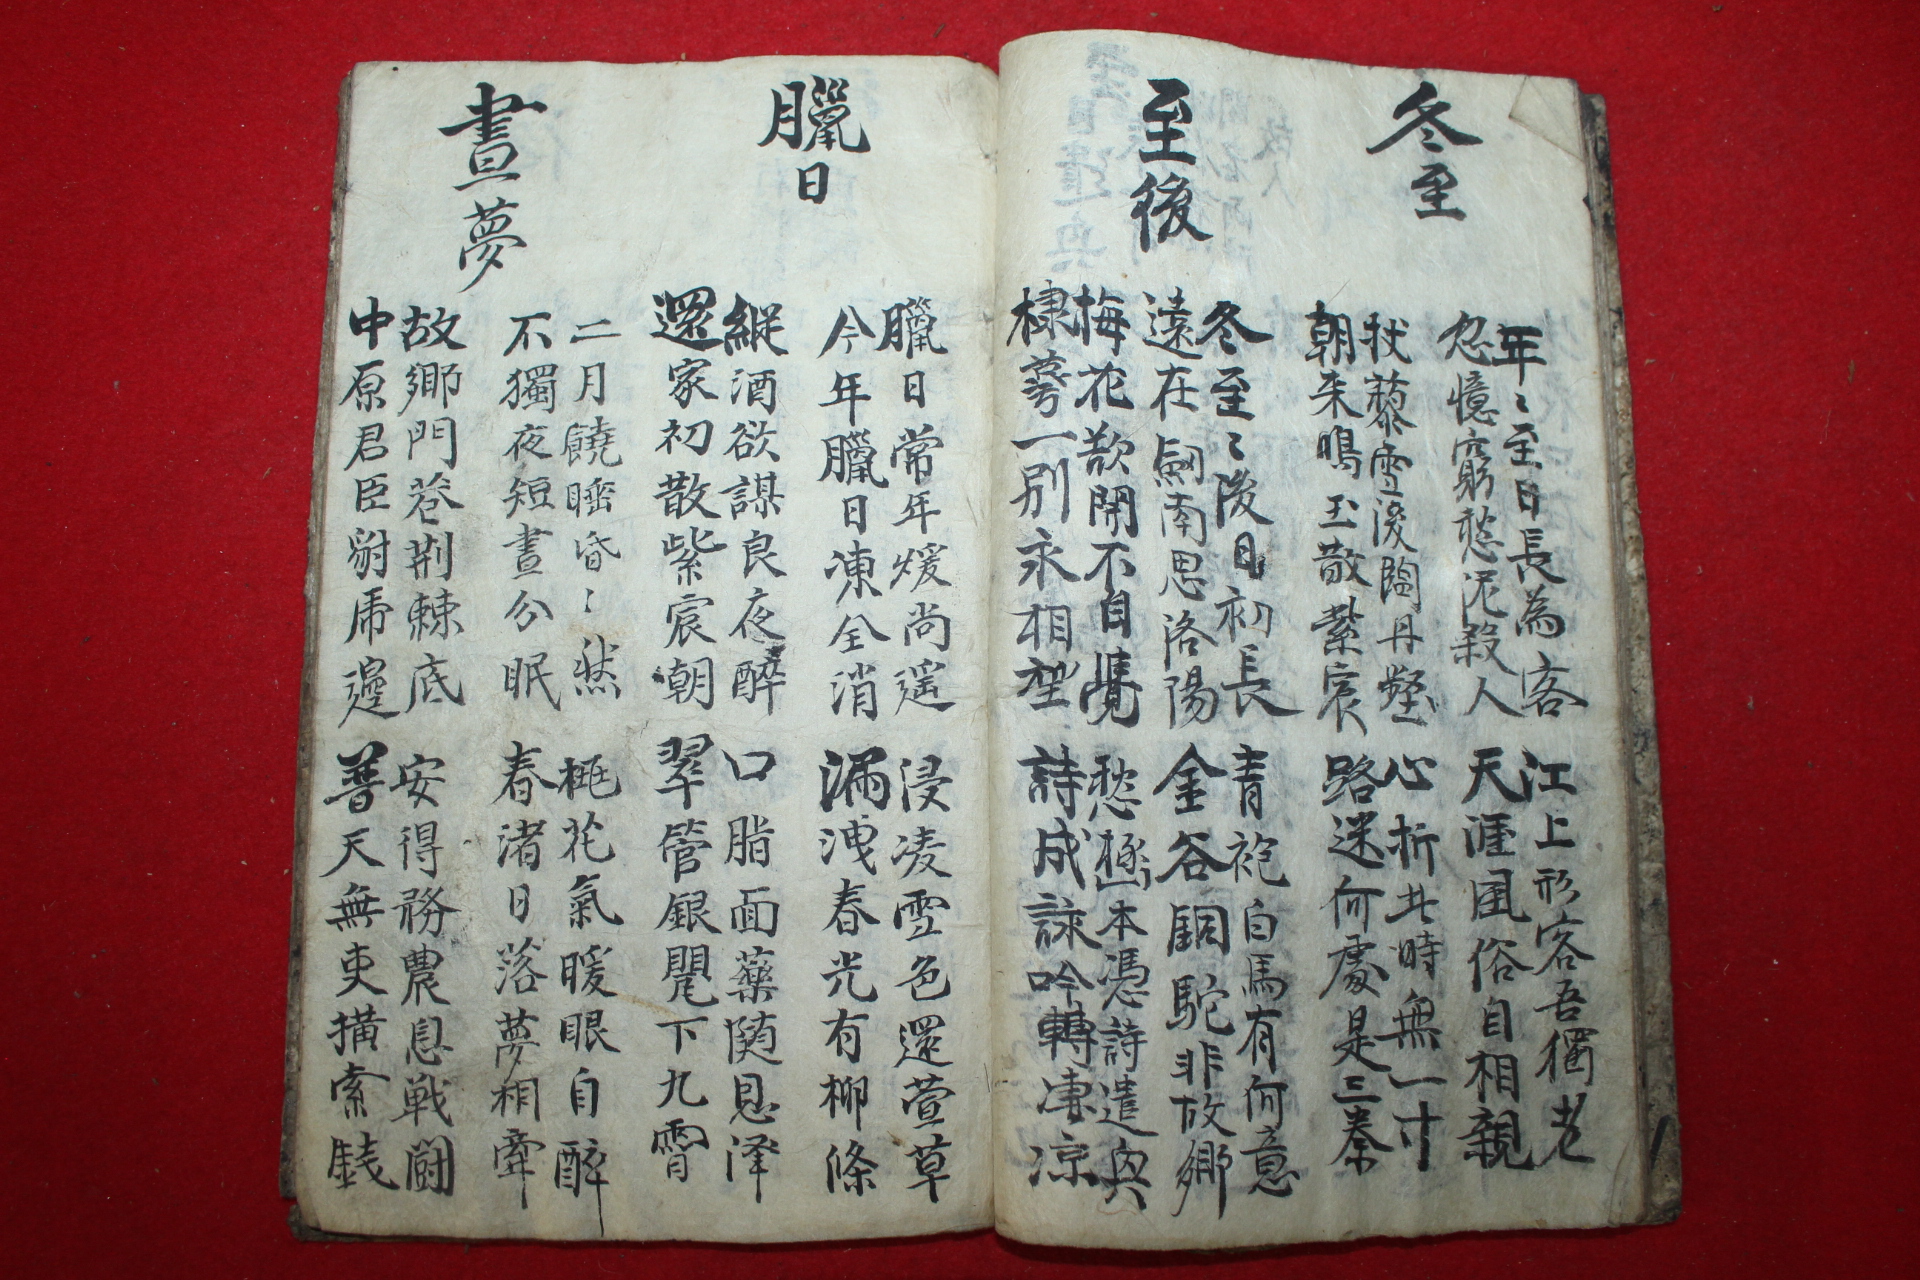 冬至
年〻至日長為客
忽憶窮愁泥殺人
江上形容吾獨老
天涯風俗自相親
杖藜雪後臨丹壑
朝来鳴玉散紫宸
心折此時無一寸
路迷何處是三秦
至後
冬至〻後日初長
遠在劒南思洛陽
青袍白馬有何意
金谷銅駝非故鄉
梅花欲開不自覺
棣萼一別永相望
愁極本憑詩遣興
詩成詠吟轉凄凉
臘日
臘日常年煖尚遥
今年臘日凍全消
浸凌雪色還萱草
漏洩春光有柳條
縱酒欲謀良夜醉
還家初散紫宸朝
口脂面藥随恩澤
翠管銀甖下九霄
晝夢
二月饒睡昏〻然
不獨夜短晝分眠
桃花氣暖眼自醉
春渚日落夢相牽
故鄉門巷荆棘底
中原君臣豺虎邊
安得務農息戦闘
普天無吏横索錢